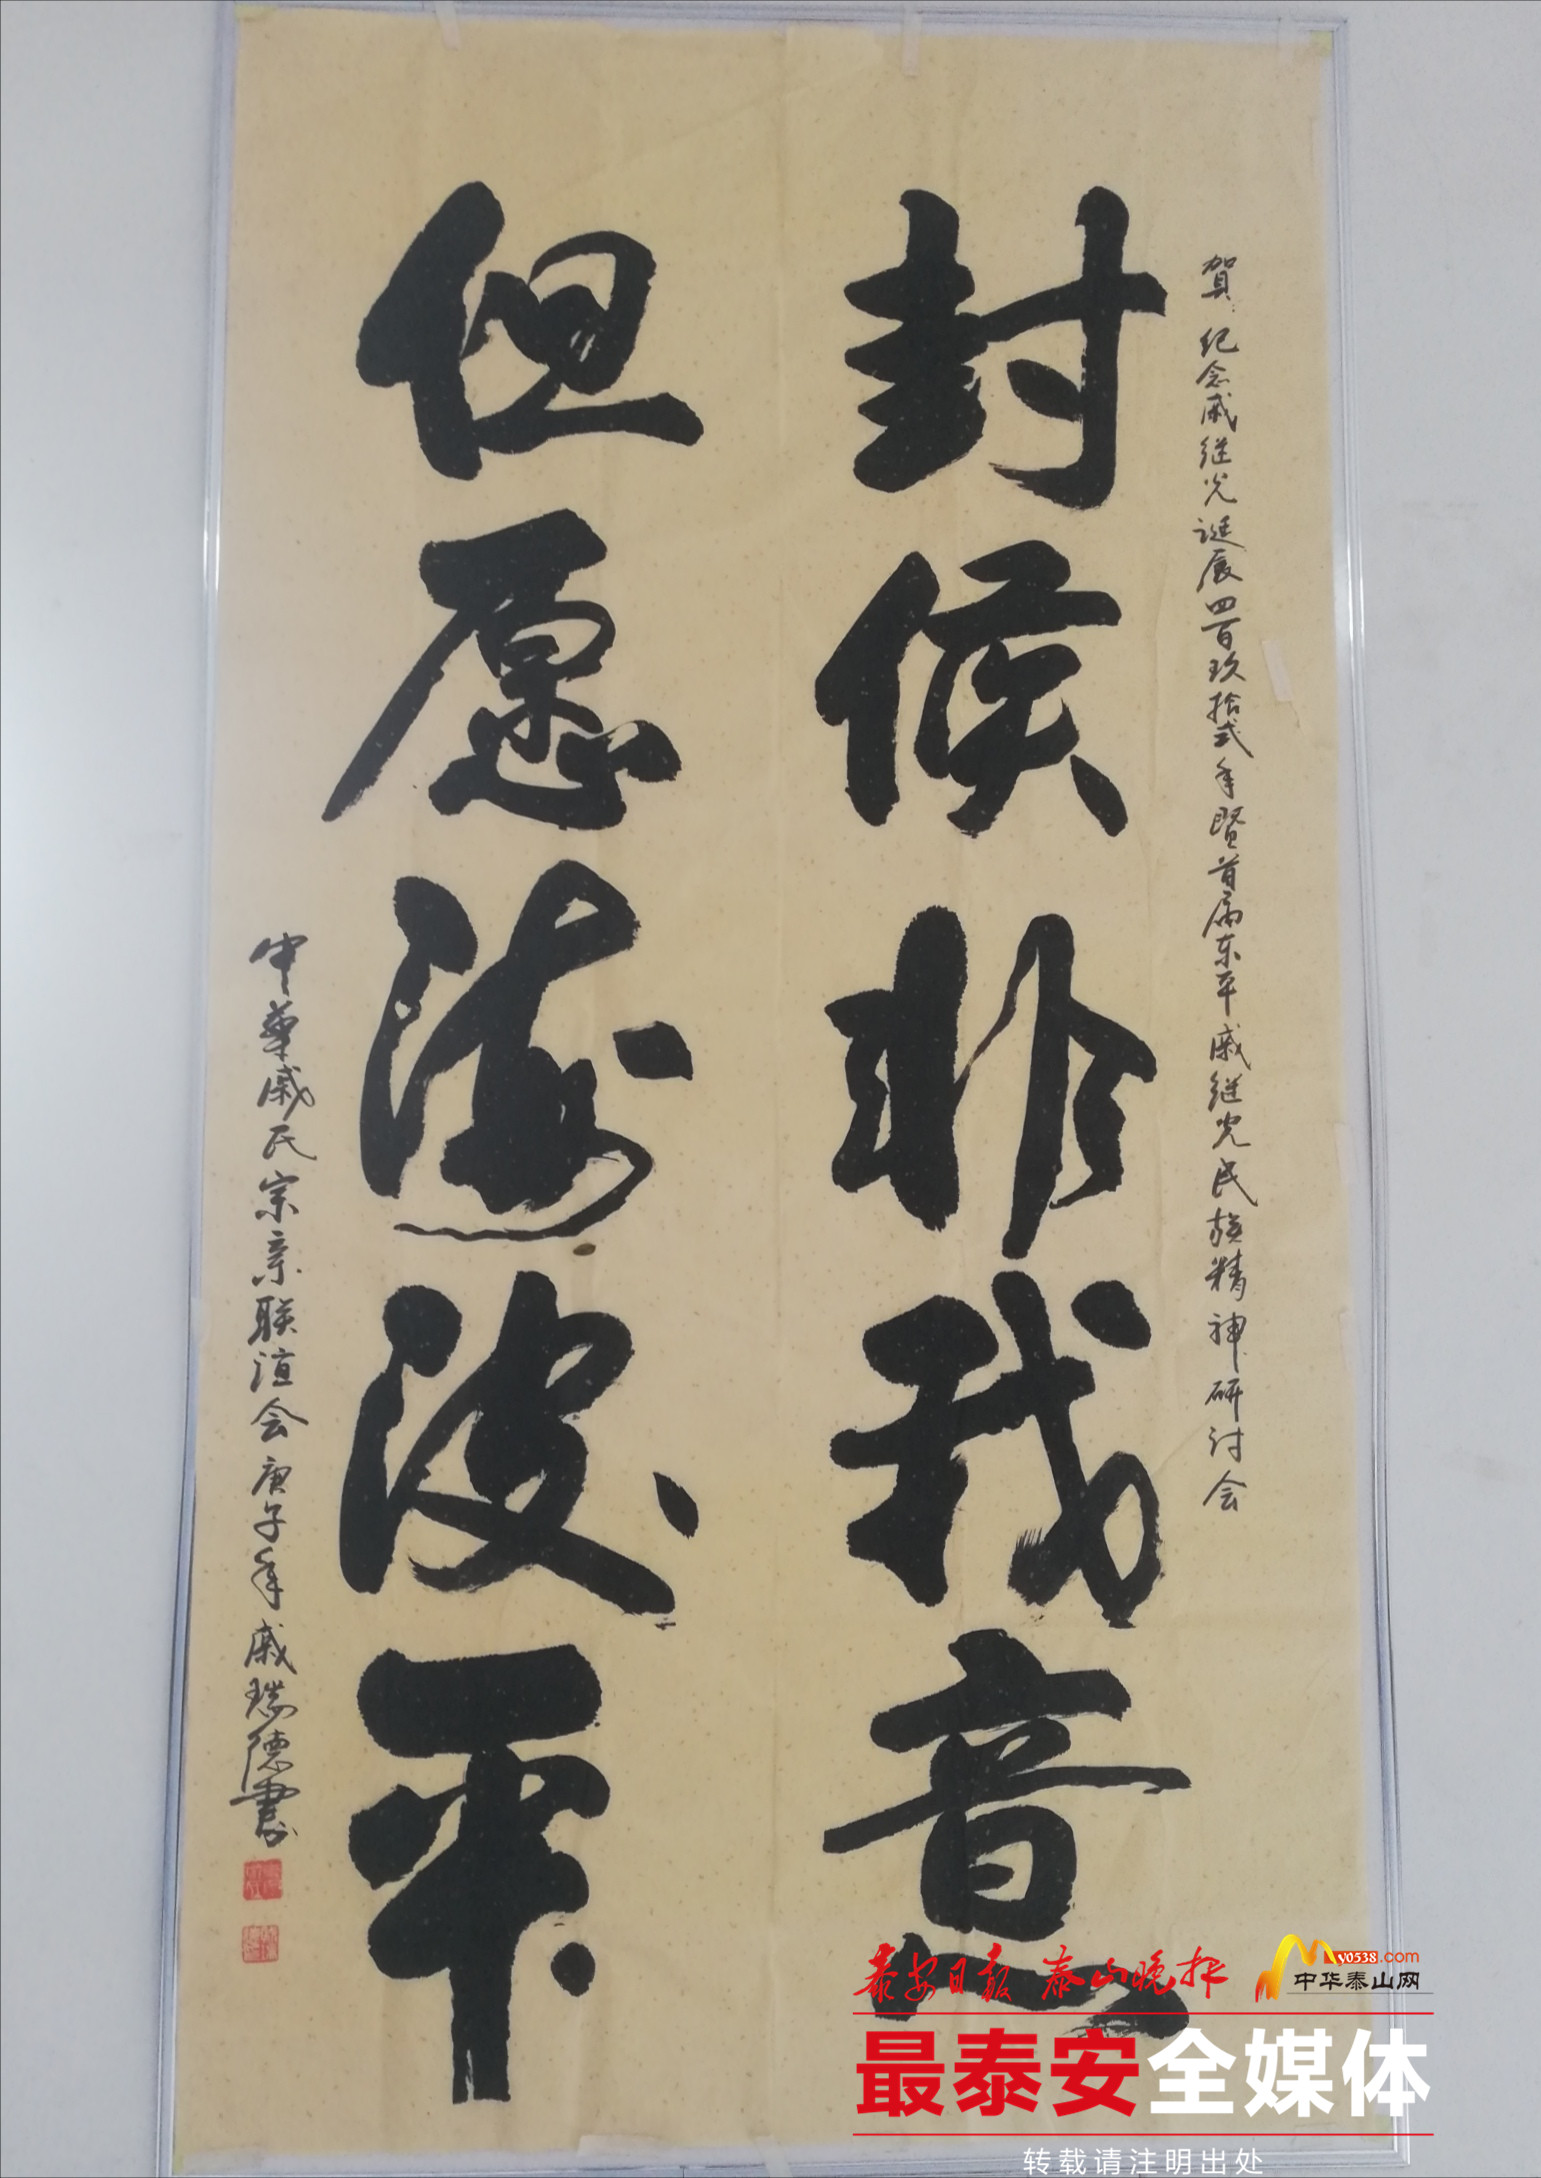 贺纪念戚继光诞辰四百玖拾弍年暨首届东平戚继光民族精神研讨会
封侯非我意
但愿海波平
中华戚氏宗亲联谊会庚子年戚瑞德書
泰安日报 泰山晚报
my0538.com
中华泰山网
最泰安全媒体
转载请注明出处